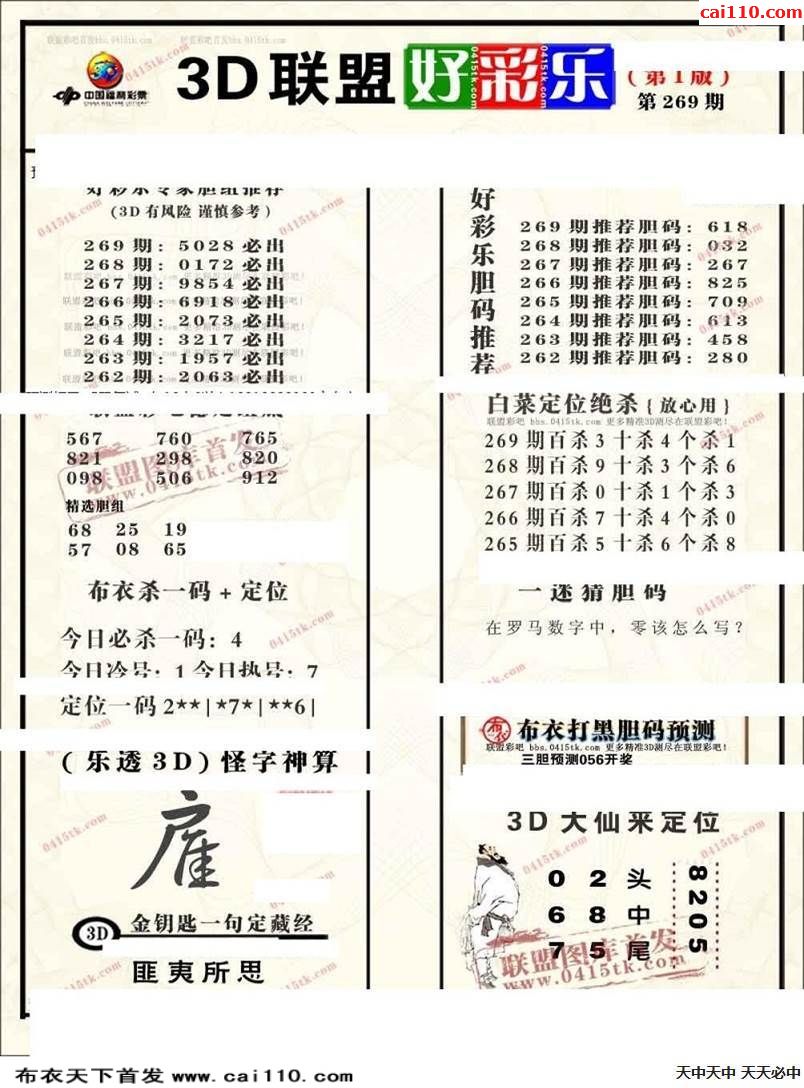 cai110.com
联盟彩吧首发bbs.0415tk.com
联盟彩吧首发bbs.0415tk.com
中国福利彩票
CHINA WELFARE LOTTERY
3D联盟好彩乐
(第1版)
第269期
好彩乐专家胆组推荐
(3D有风险 谨慎参考)
269期: 5028必出
268期: 0172必出
267期: 9854必出
266期: 6918必出
265期: 2073必出
264期: 3217必出
263期: 1957必出
262期: 2063必出
567 760 765
821 298 820
098 506 912
精选胆组
68 25 19
57 08 65
布衣杀一码+定位
今日必杀一码: 4
今日冷号: 1 今日热号: 7
定位一码2**|*7*|**6|
(乐透3D)怪字神算
雇
3D
金钥匙一句定藏经
匪夷所思
好彩乐胆码推荐
269期推荐胆码: 618
268期推荐胆码: 032
267期推荐胆码: 267
266期推荐胆码: 825
265期推荐胆码: 709
264期推荐胆码: 613
263期推荐胆码: 458
262期推荐胆码: 280
白菜定位绝杀{放心用}
联盟彩吧 bbs.0415tk.com 更多精准3D测尽在联盟彩吧!
269期百杀3十杀4个杀1
268期百杀9十杀3个杀6
267期百杀0十杀1个杀3
266期百杀7十杀4个杀0
265期百杀5十杀6个杀8
一迷猜胆码
在罗马数字中，零该怎么写?
布衣
布衣打黑胆码预测
联盟彩吧 bbs.0415tk.com 更多精准3D测尽在联盟彩吧!
三胆预测056开奖
3D大仙来定位
0 2 头
6 8 中
7 5 尾
8205
联盟图库首发
www.0415tk.com
联盟图库首发
www.0415tk.com
布衣天下首发 www.cai110.com
天中天中 天天必中